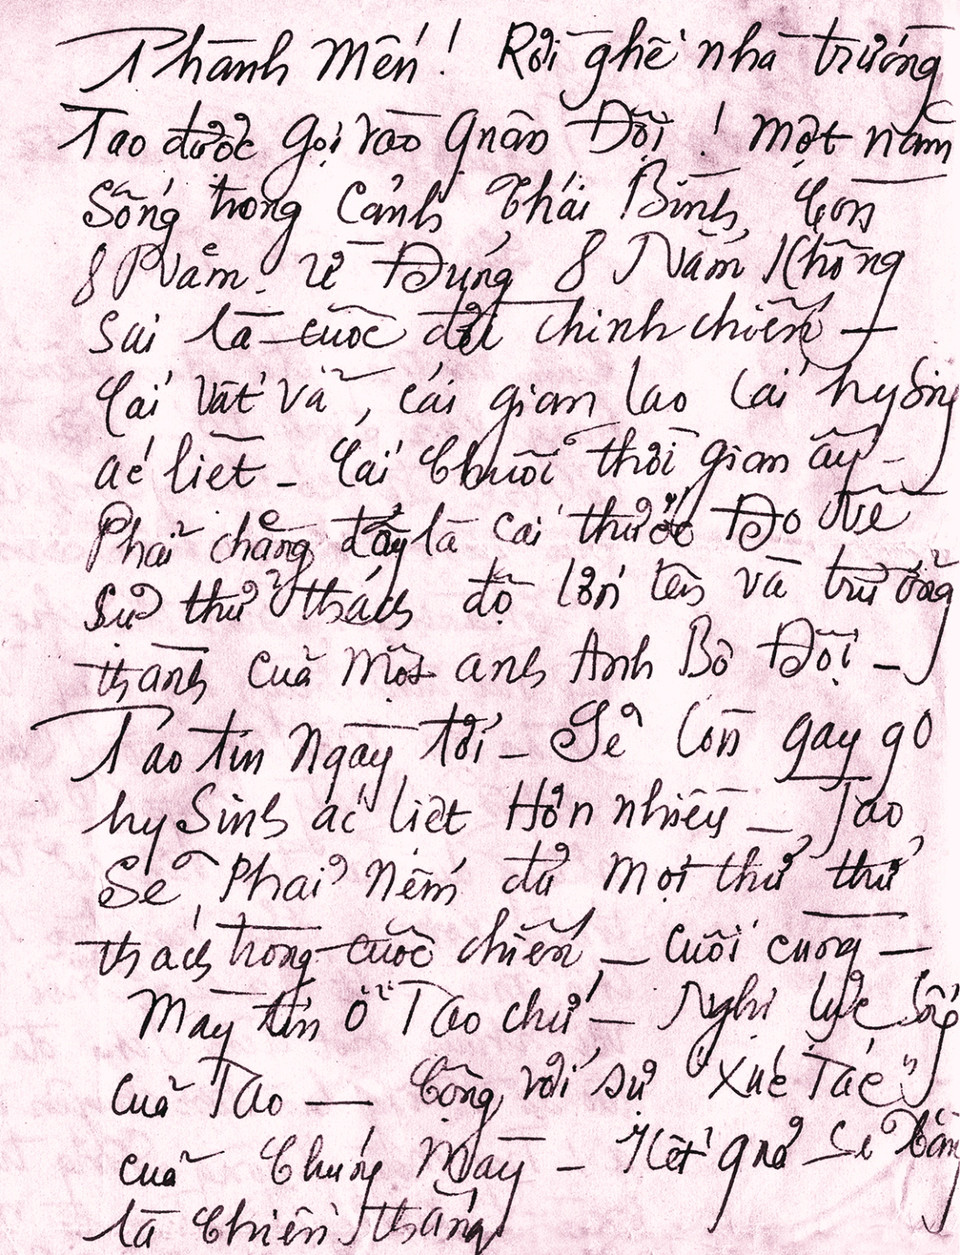 Thành mến! Rời ghế nhà trường
Tao được gọi vào Quân Đội! Một năm
Sống trong Cảnh Thái Bình, Còn
8 Năm. Ừ Đúng 8 Năm Không
Sai là cuộc đời chinh chiến —
Cái Vất vả, cái gian lao cái hy Sinh
ác liệt - Cái Chuỗi thời gian ấy -
Phải chăng đây là cái thước Đo về
Sự thử thách độ lớn lên và trưởng
thành của một anh Anh Bộ Đội -
Tao tin Ngày tới - Sẽ Còn gay go
hy Sinh ác liệt Hơn nhiều - Tao
Sẽ Phải Nếm đủ mọi thứ thử
thách trong cuộc chiến, - cuối cùng -
Mày tin Ở Tao chứ - Nghị lực Sống
Của Tao — Cộng với sự "Xúc Tác"
của Chúng Mày - Kết quả Sẽ
là Chiến thắng